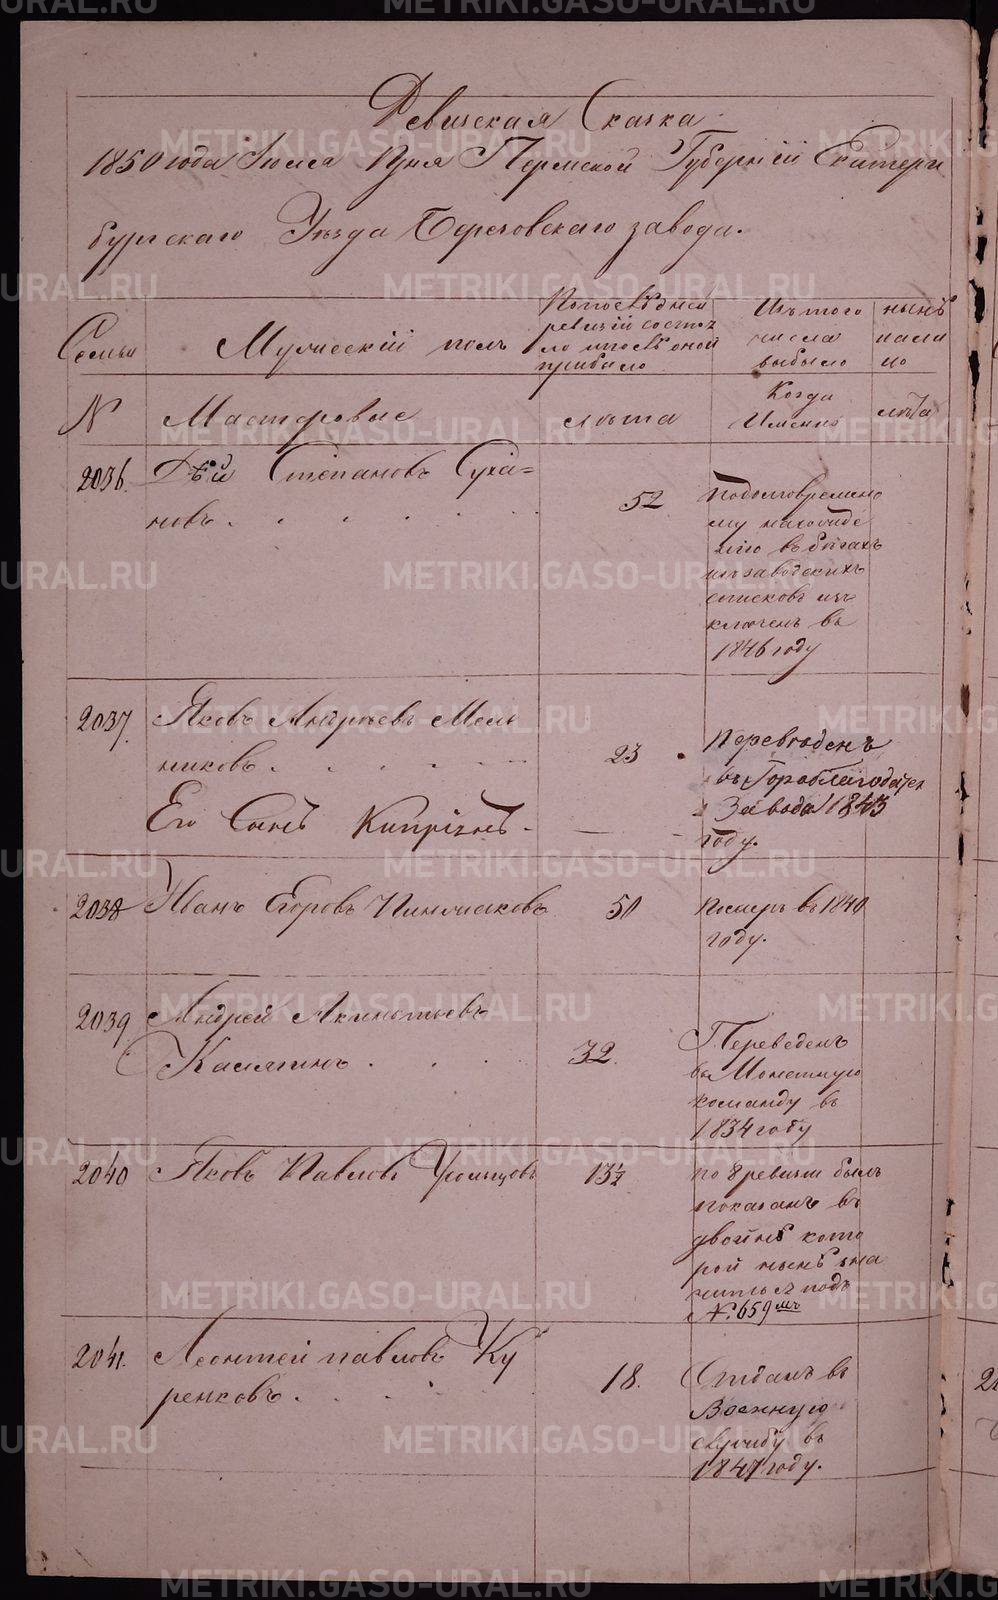 Ревижская Скажка
1850 года Июля Дня Пермской Губерніи Екатерин
бургскаго Уѣзда Березовскаго завода.
Семьи
Мужескій полъ
По последней
ревизіи состоя
ло и после оной
прибыло
Изъ того
числа
выбыло
нынѣ
нали
цо
N
Мастеровые
лѣта
Когда
Именно
лѣта
2036.
Степановъ Суха=
новъ . . . . . .
52
по долговремено
му нахожде
нію въ бѣгахъ
изъ заводскихъ
списковъ из
ключенъ въ
1846 году
2037.
Яковъ Андреевъ Мель
никовъ . . . . .
23
Его Сынъ Кипріянъ. —
Переведенъ
въ Гороблагодатск
Завода 1843
году.
2038
Иванъ Егоровъ
50
Померъ въ 1840
году.
2039
Андрей Акинфьевъ
Касяткинъ . . .
32.
Переведенъ
въ Монетную
команду въ
1834 году
2040
Яковъ Павловъ
13½
по 8 ревизіи былъ
показанъ въ
двойнѣ кото
рой нынѣ зна
читься подъ
№. 659 мъ
2041.
Леонтей павловъ Ку
ренковъ. . . .
18.
Отданъ въ
Военную
службу въ
1847 году.
METRIKI.GASO-URAL.RU